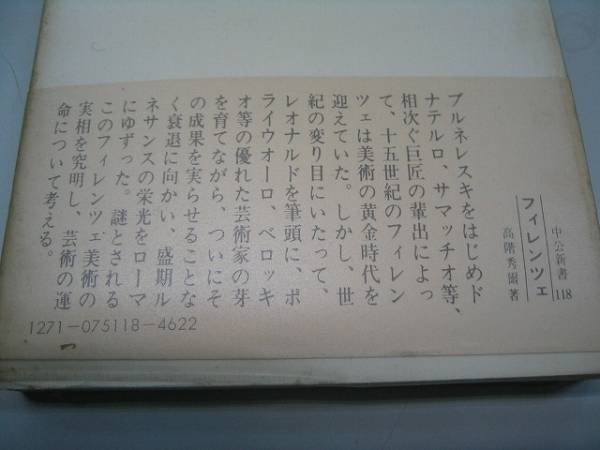 中公新書 118
フィレンツェ
高階秀爾著
ブルネレスキをはじめド
ナテルロ、サマッチオ等、
相次ぐ巨匠の輩出によっ
て、十五世紀のフィレン
ツェは美術の黄金時代を
迎えていた。しかし、世
紀の変り目にいたって、
レオナルドを筆頭に、ポ
ライウオーロ、ベロッキ
オ等の優れた芸術家の芽
を育てながら、ついにそ
の成果を実らせることな
く衰退に向かい、盛期ル
ネサンスの栄光をローマ
にゆずった。謎とされる
このフィレンツェ美術の
実相を究明し、芸術の運
命について考える。
1271-075118-4622